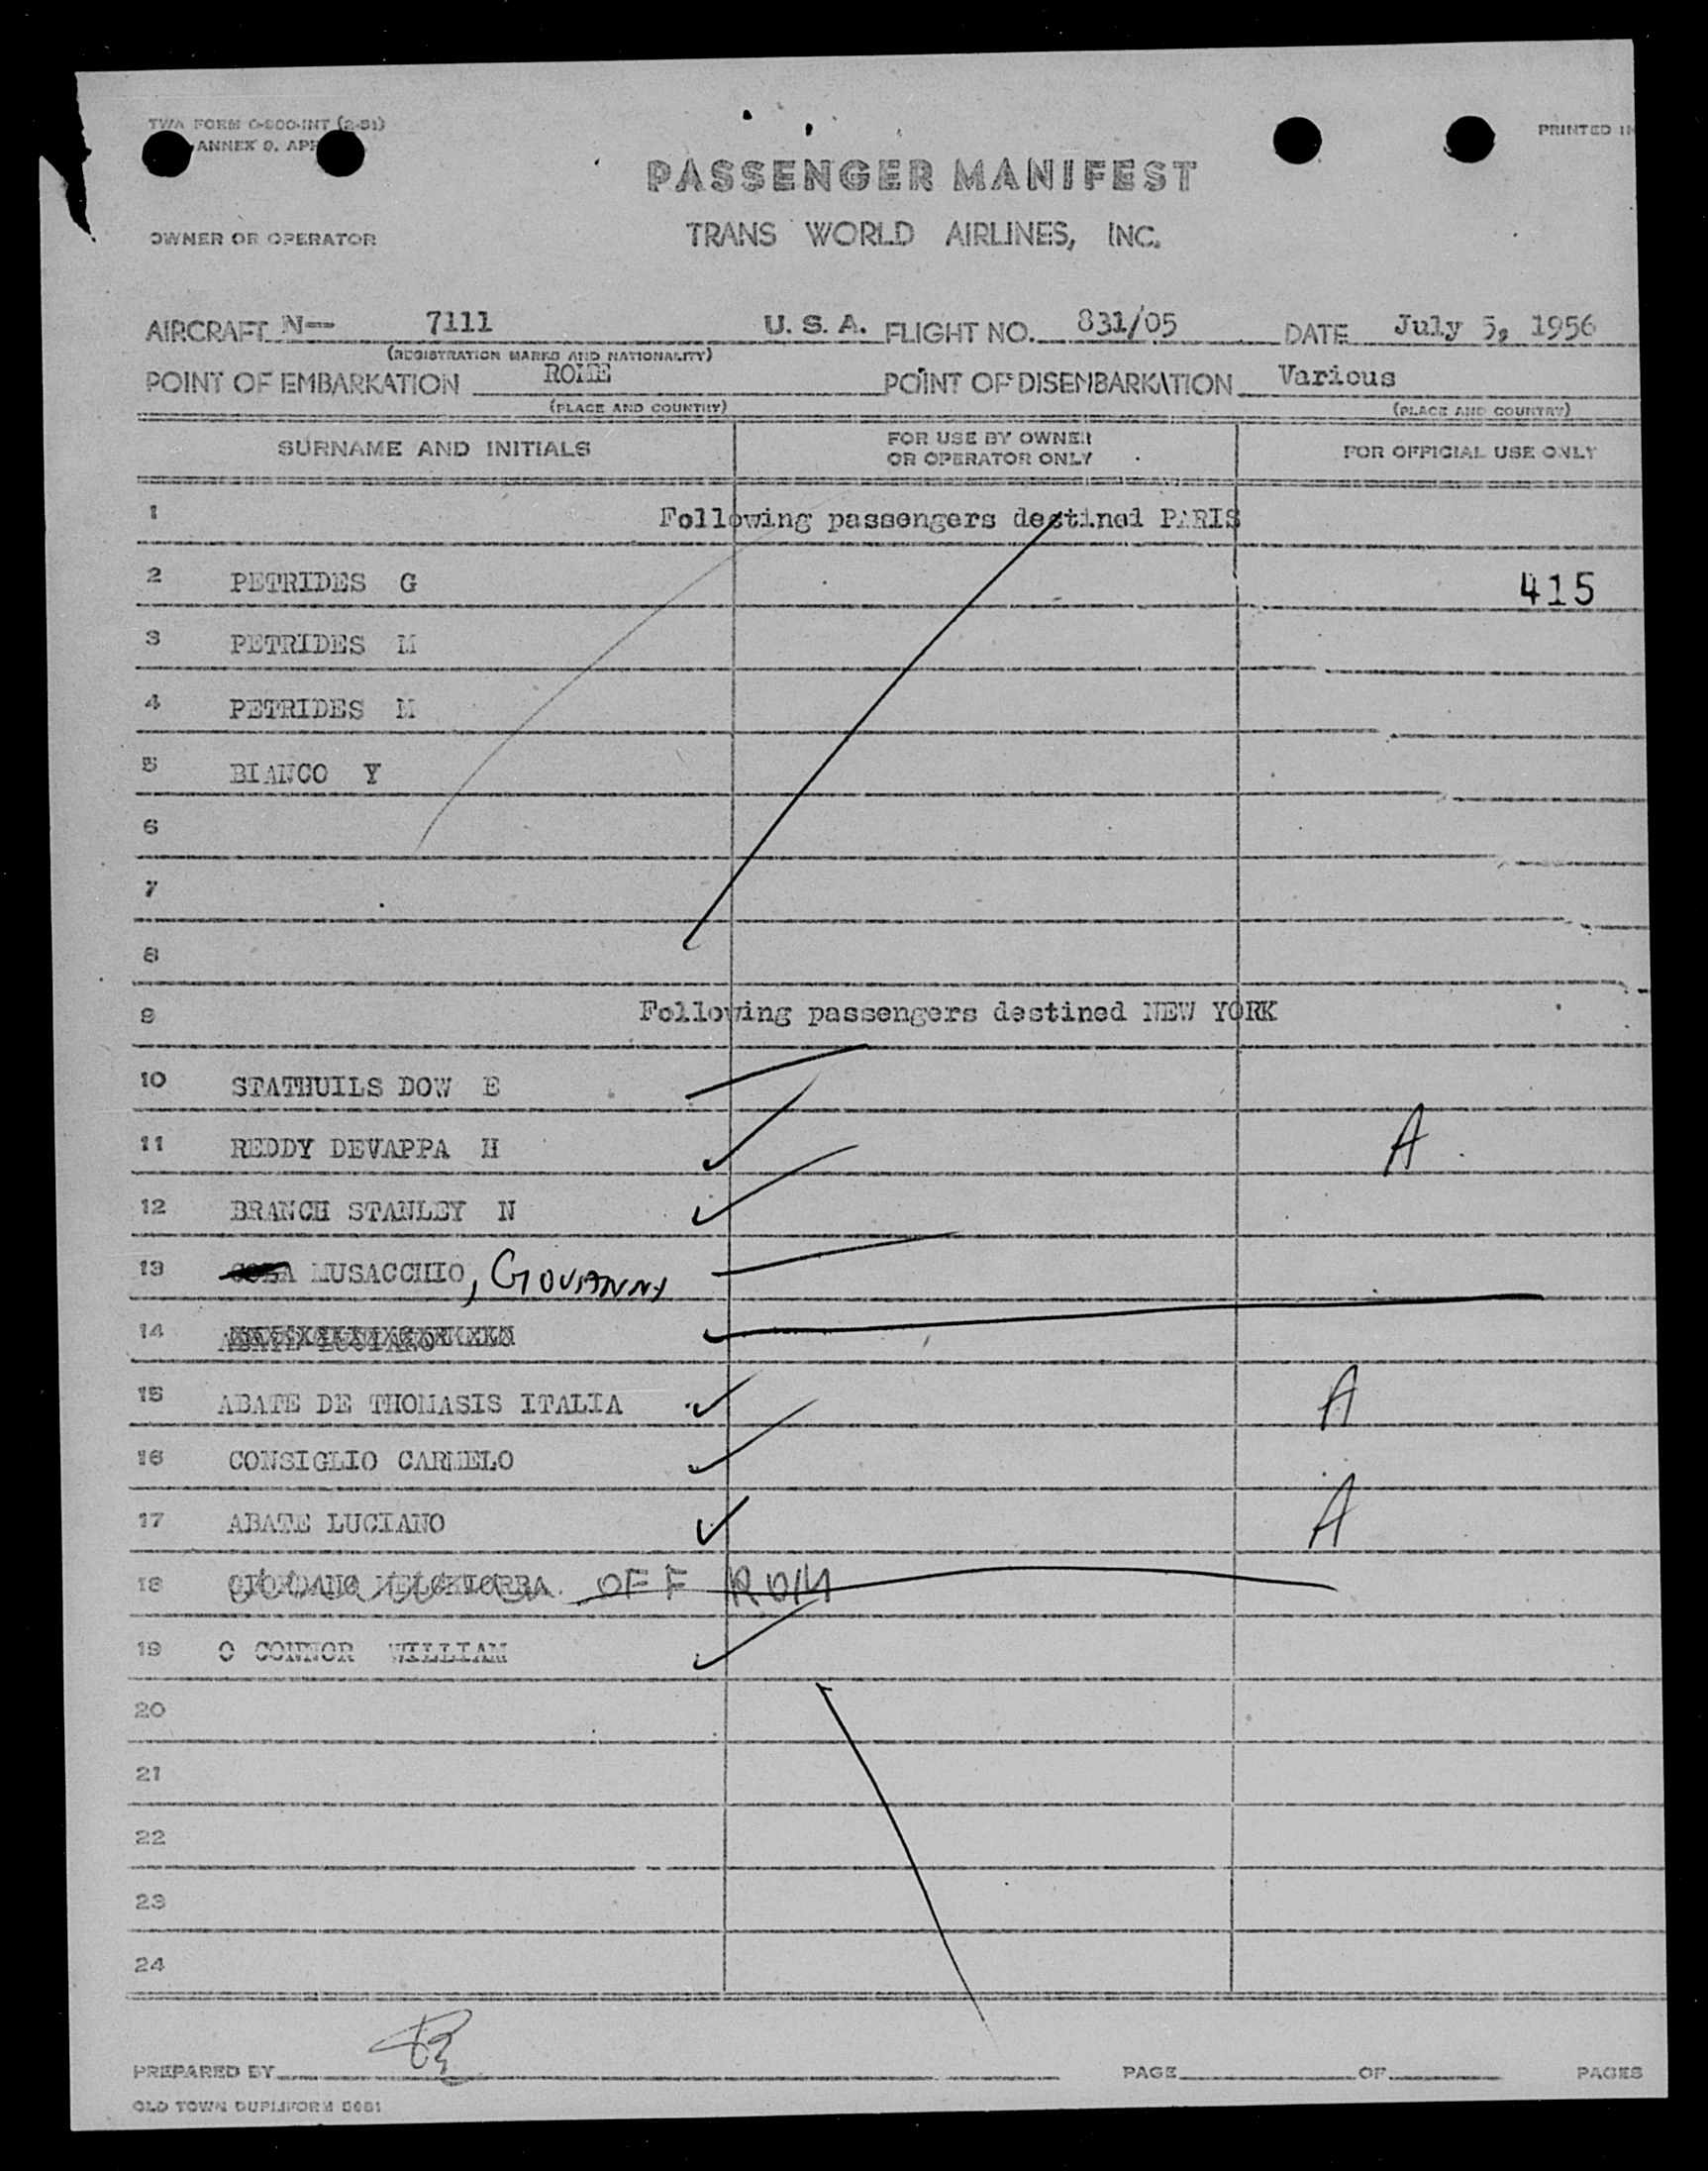 TWA FORM O-800-INT (2-51)
ANNEX 9, AP
PRINTED IN
PASSENGER MANIFEST
OWNER OR OPERATOR
TRANS WORLD AIRLINES, INC.
AIRCRAFT N-- 7111 U. S. A. FLIGHT NO. 831/05 DATE July 5, 1956
(REGISTRATION MARKS AND NATIONALITY)
POINT OF EMBARKATION ROME POINT OF DISEMBARKATION Various
(PLACE AND COUNTRY) (PLACE AND COUNTRY)
SURNAME AND INITIALS FOR USE BY OWNER OR OPERATOR ONLY FOR OFFICIAL USE ONLY
1 Following passengers destined PARIS
2 PETRIDES G 415
3 PETRIDES M
4 PETRIDES M
5 BIANCO Y
6
7
8
9 Following passengers destined NEW YORK
10 STATHUILS DOW E
11 REDDY DEVAPPA H A
12 BRANCH STANLEY N
13 MUSACCHIO, GIOVANNY
14
15 ABATE DE THOMASIS ITALIA A
16 CONSIGLIO CARMELO
17 ABATE LUCIANO A
18 GIORDANO OFF ROM
19 O CONNOR WILLIAM
20
21
22
23
24
PREPARED BY PAGE OF PAGES
OLD TOWN DUPLIFORM